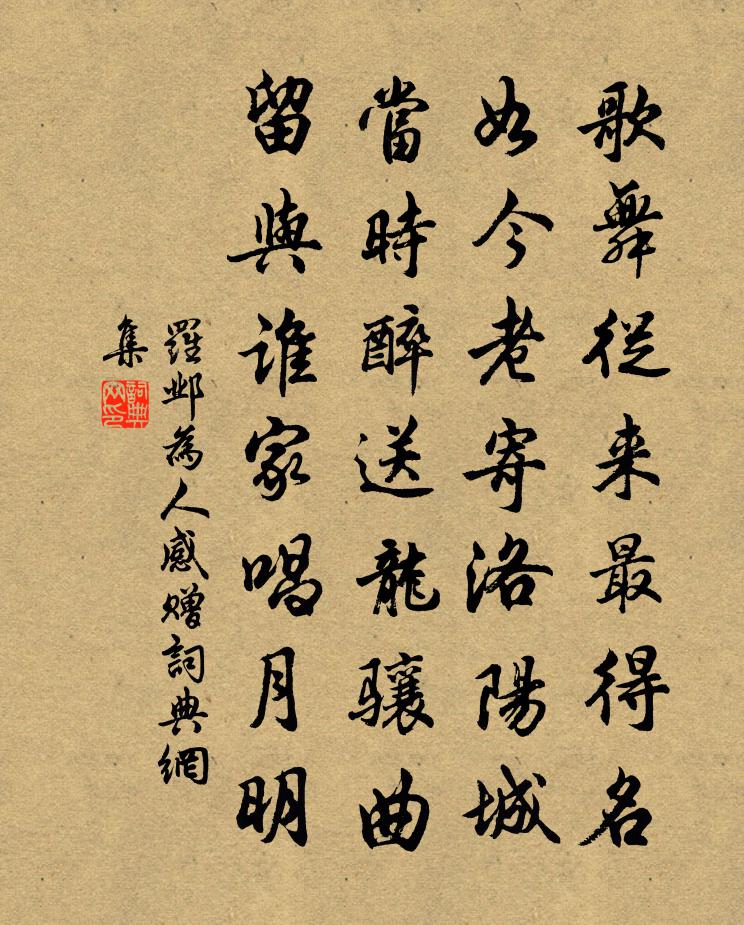 歌舞從来最得名
如今老寄洛陽城
當時醉送龍驤曲
留與誰家唱月明
羅鄴為人感贈詞典網
集
詞典網印